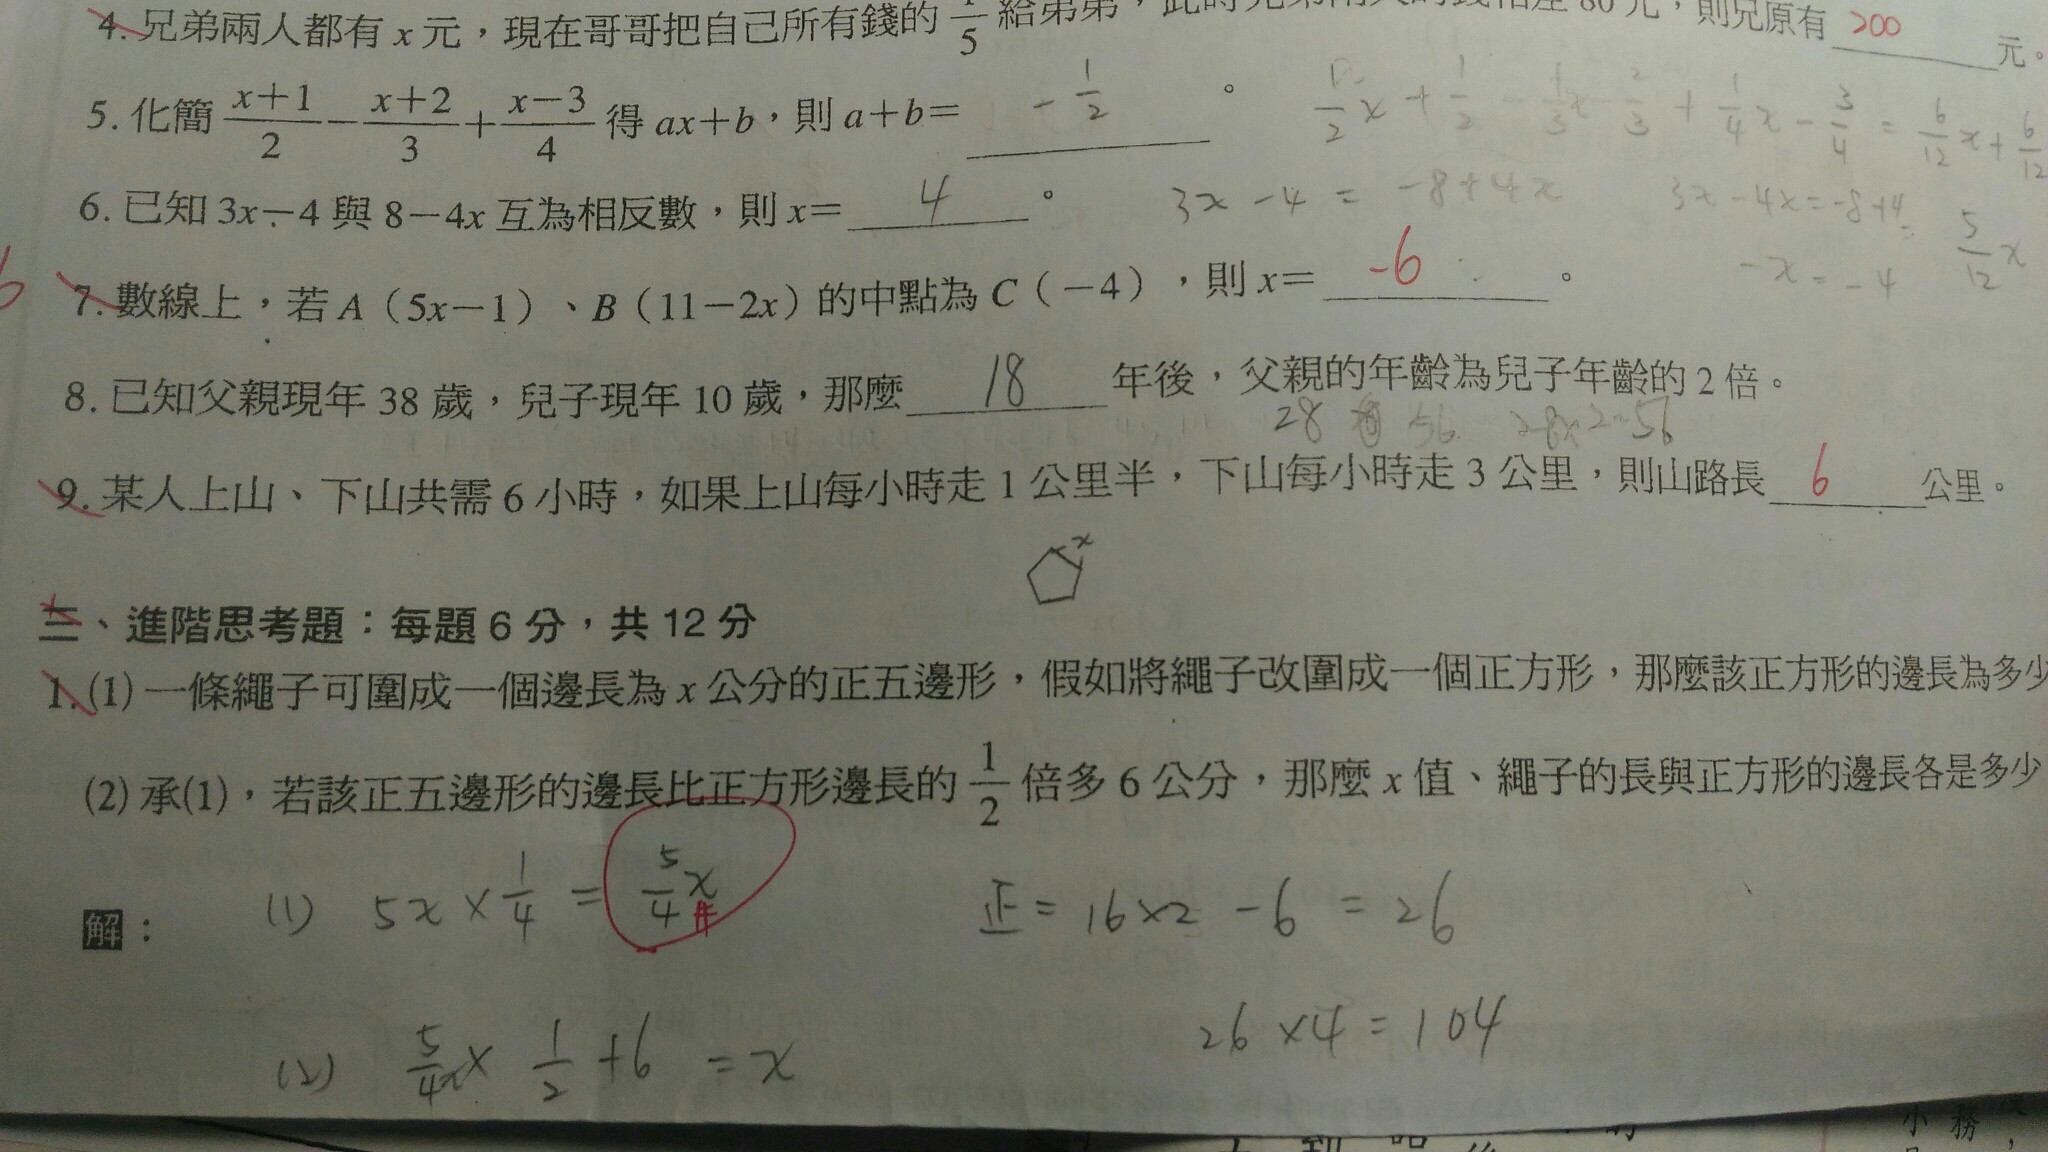 4. 兄弟兩人都有 x 元，現在哥哥把自己所有錢的 1/5 給弟弟，此時兄弟兩人的錢相差 80 元，則兄原有 200 元。
5. 化簡 (x+1)/2 − (x+2)/3 + (x−3)/4 得 ax+b，則 a+b= -1/2 。
1/2 x + 1/2 - 1/3 x - 2/3 + 1/4 x - 3/4 = 6/12 x + 6/12
6. 已知 3x−4 與 8−4x 互為相反數，則 x= 4 。
3x - 4 = -8+4x
3x - 4x = -8+4
5/12 x
-x = -4
7. 數線上，若 A（5x−1）、B（11−2x）的中點為 C（−4），則 x= -6 。
8. 已知父親現年 38 歲，兒子現年 10 歲，那麼 18 年後，父親的年齡為兒子年齡的 2 倍。
28 56 28×2=56
9. 某人上山、下山共需 6 小時，如果上山每小時走 1 公里半，下山每小時走 3 公里，則山路長 6 公里。
x
三、進階思考題：每題 6 分，共 12 分
1. (1) 一條繩子可圍成一個邊長為 x 公分的正五邊形，假如將繩子改圍成一個正方形，那麼該正方形的邊長為多少
(2) 承(1)，若該正五邊形的邊長比正方形邊長的 1/2 倍多 6 公分，那麼 x 值、繩子的長與正方形的邊長各是多少
解：
(1) 5x × 1/4 = 5/4 x #
正 = 16×2 - 6 = 26
(2) 5/4 x × 1/2 + 6 = x
26 × 4 = 104
小 務，